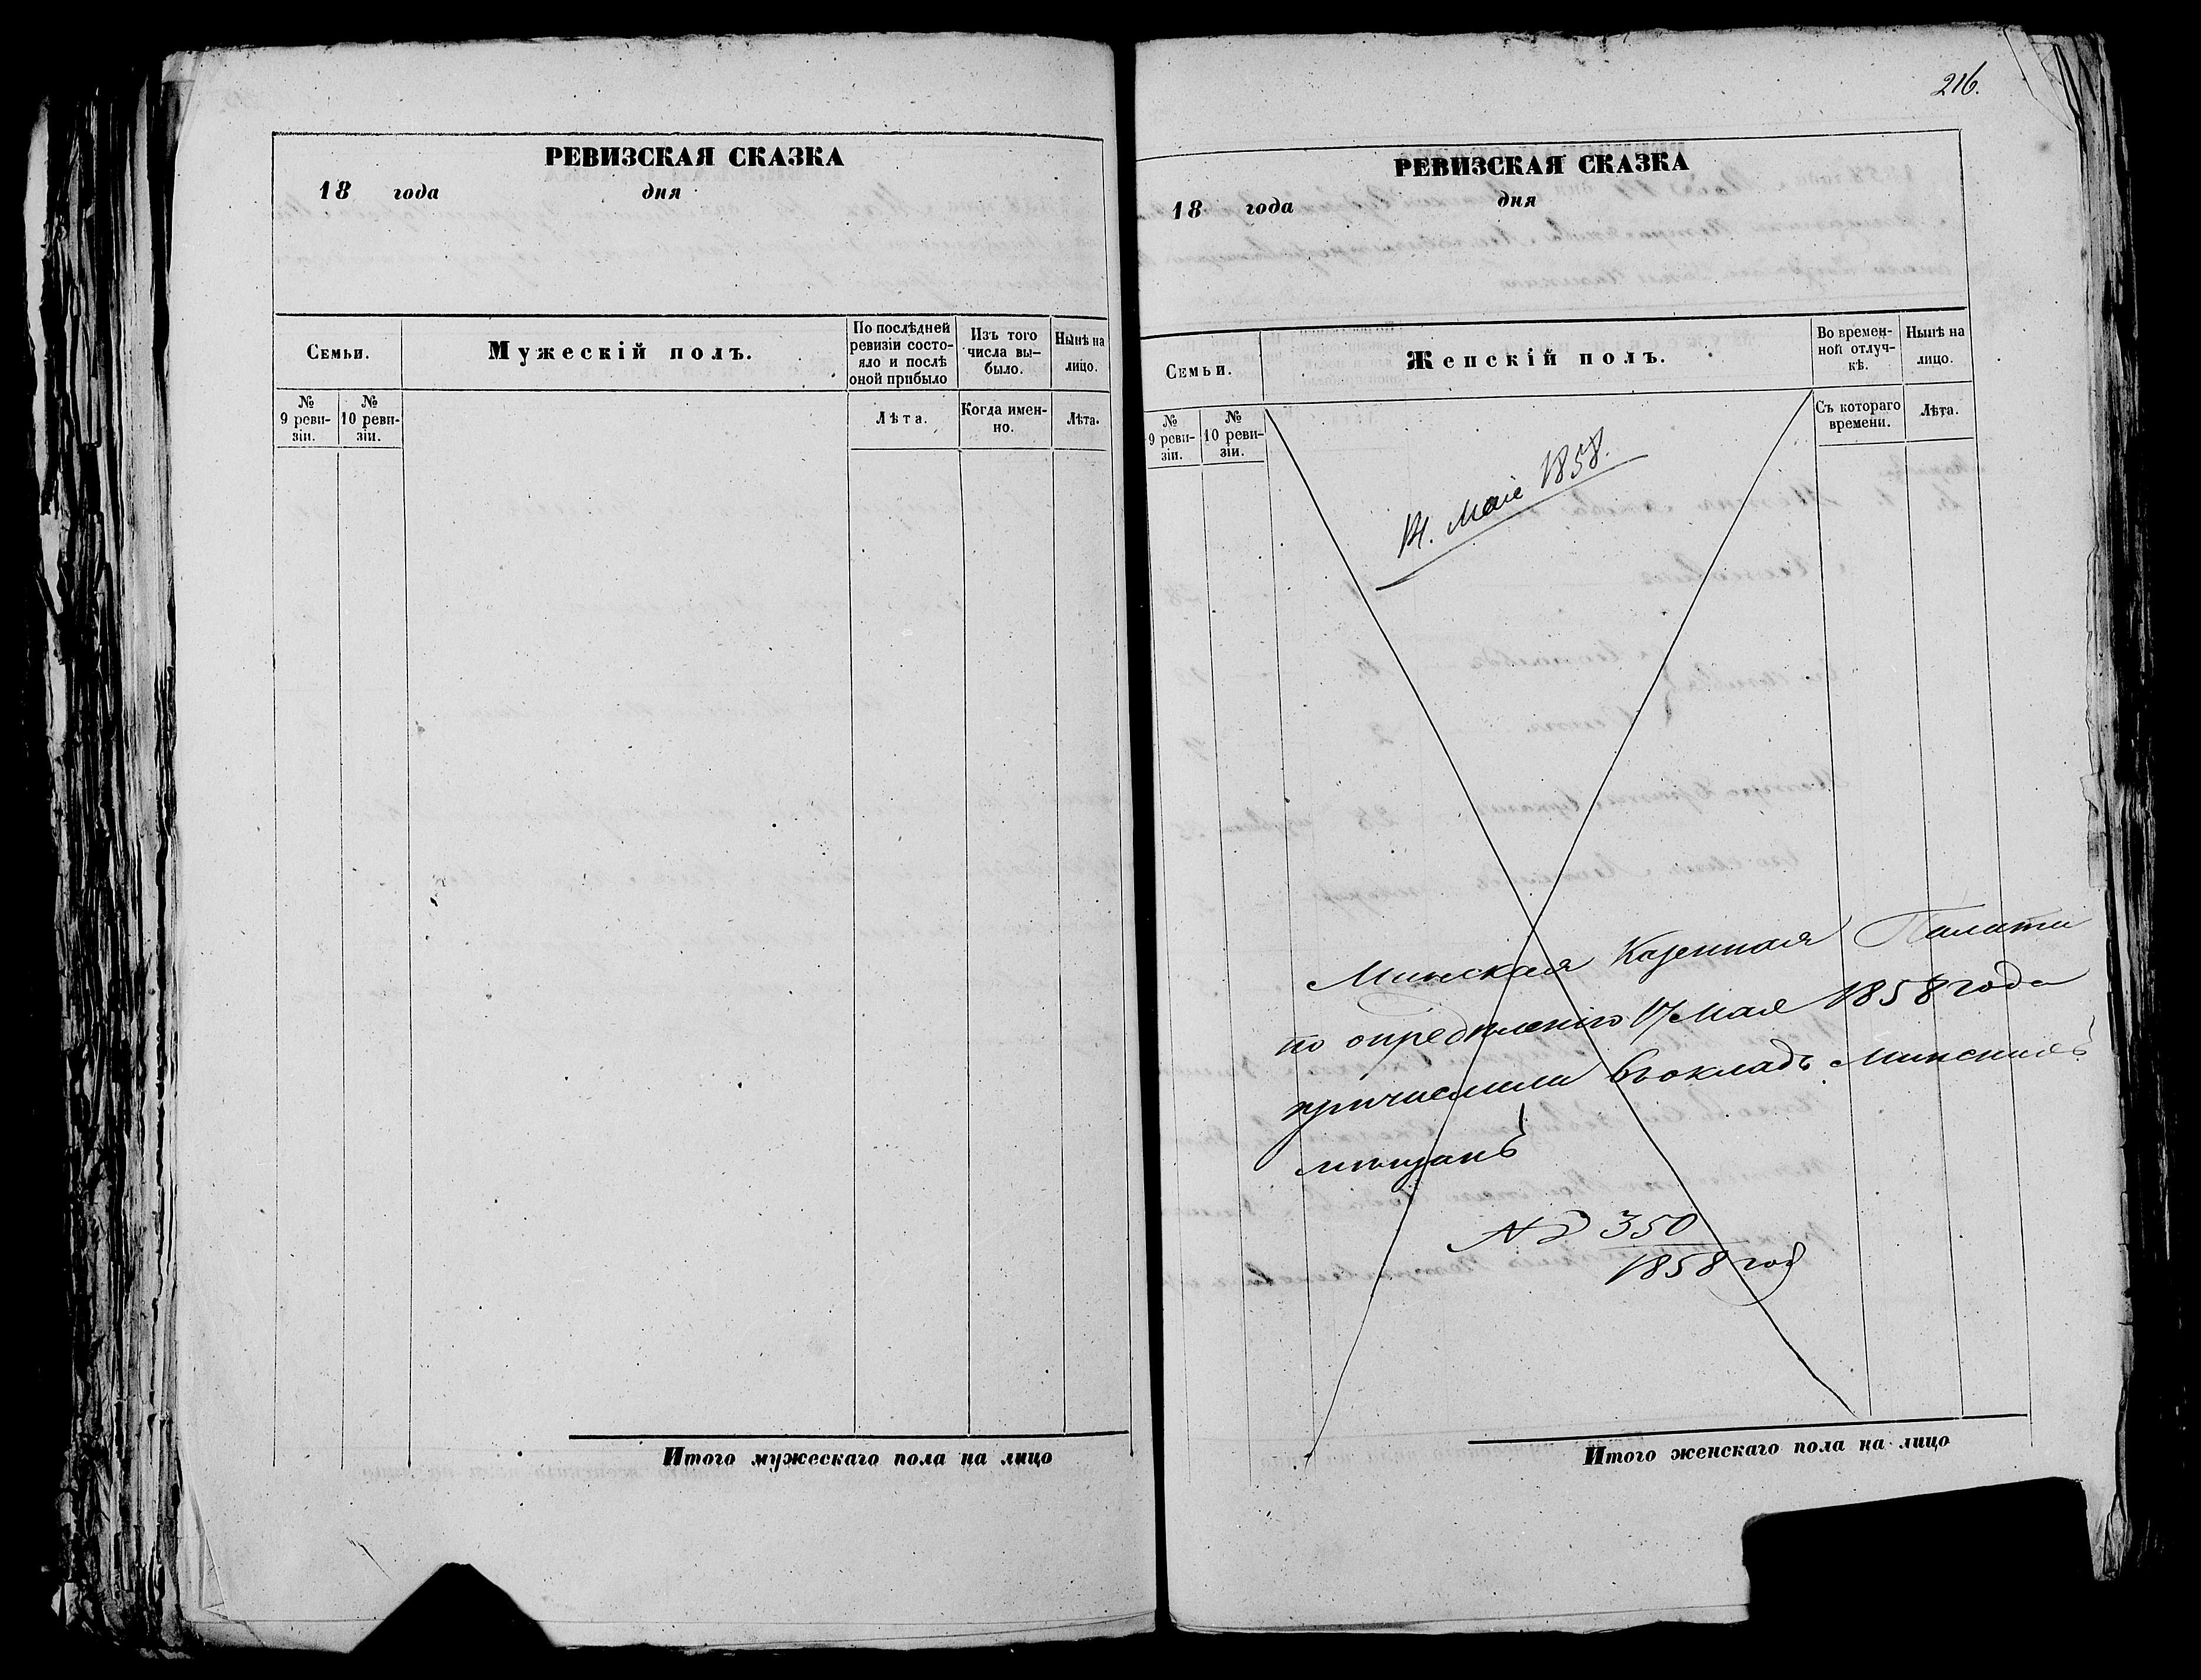 РЕВИЗСКАЯ СКАЗКА
18 года дня
Семьи.
Мужескій полъ.
По послѣдней
ревизіи состо-
яло и послѣ
оной прибыло
Изъ того
числа вы-
было.
Нынѣ на
лицо.
№
9 реви-
зіи.
№
10 реви-
зіи.
Лѣта.
Когда имен-
но.
Лѣта.
Итого мужескаго пола на лицо
216.
РЕВИЗСКАЯ СКАЗКА
18 года дня
Семьи.
Женскій полъ.
Во времен-
ной отлуч-
кѣ.
Нынѣ на
лицо.
№
9 реви-
зіи.
№
10 реви-
зіи.
Съ котораго
времени.
Лѣта.
14. Маіе 1858.
Минская Казенная Палата
по опредѣленію 17 Мая 1858 года
причислила въ окладъ Минскихъ
мѣщанъ
№ 350
1858 год
Итого женскаго пола на лицо